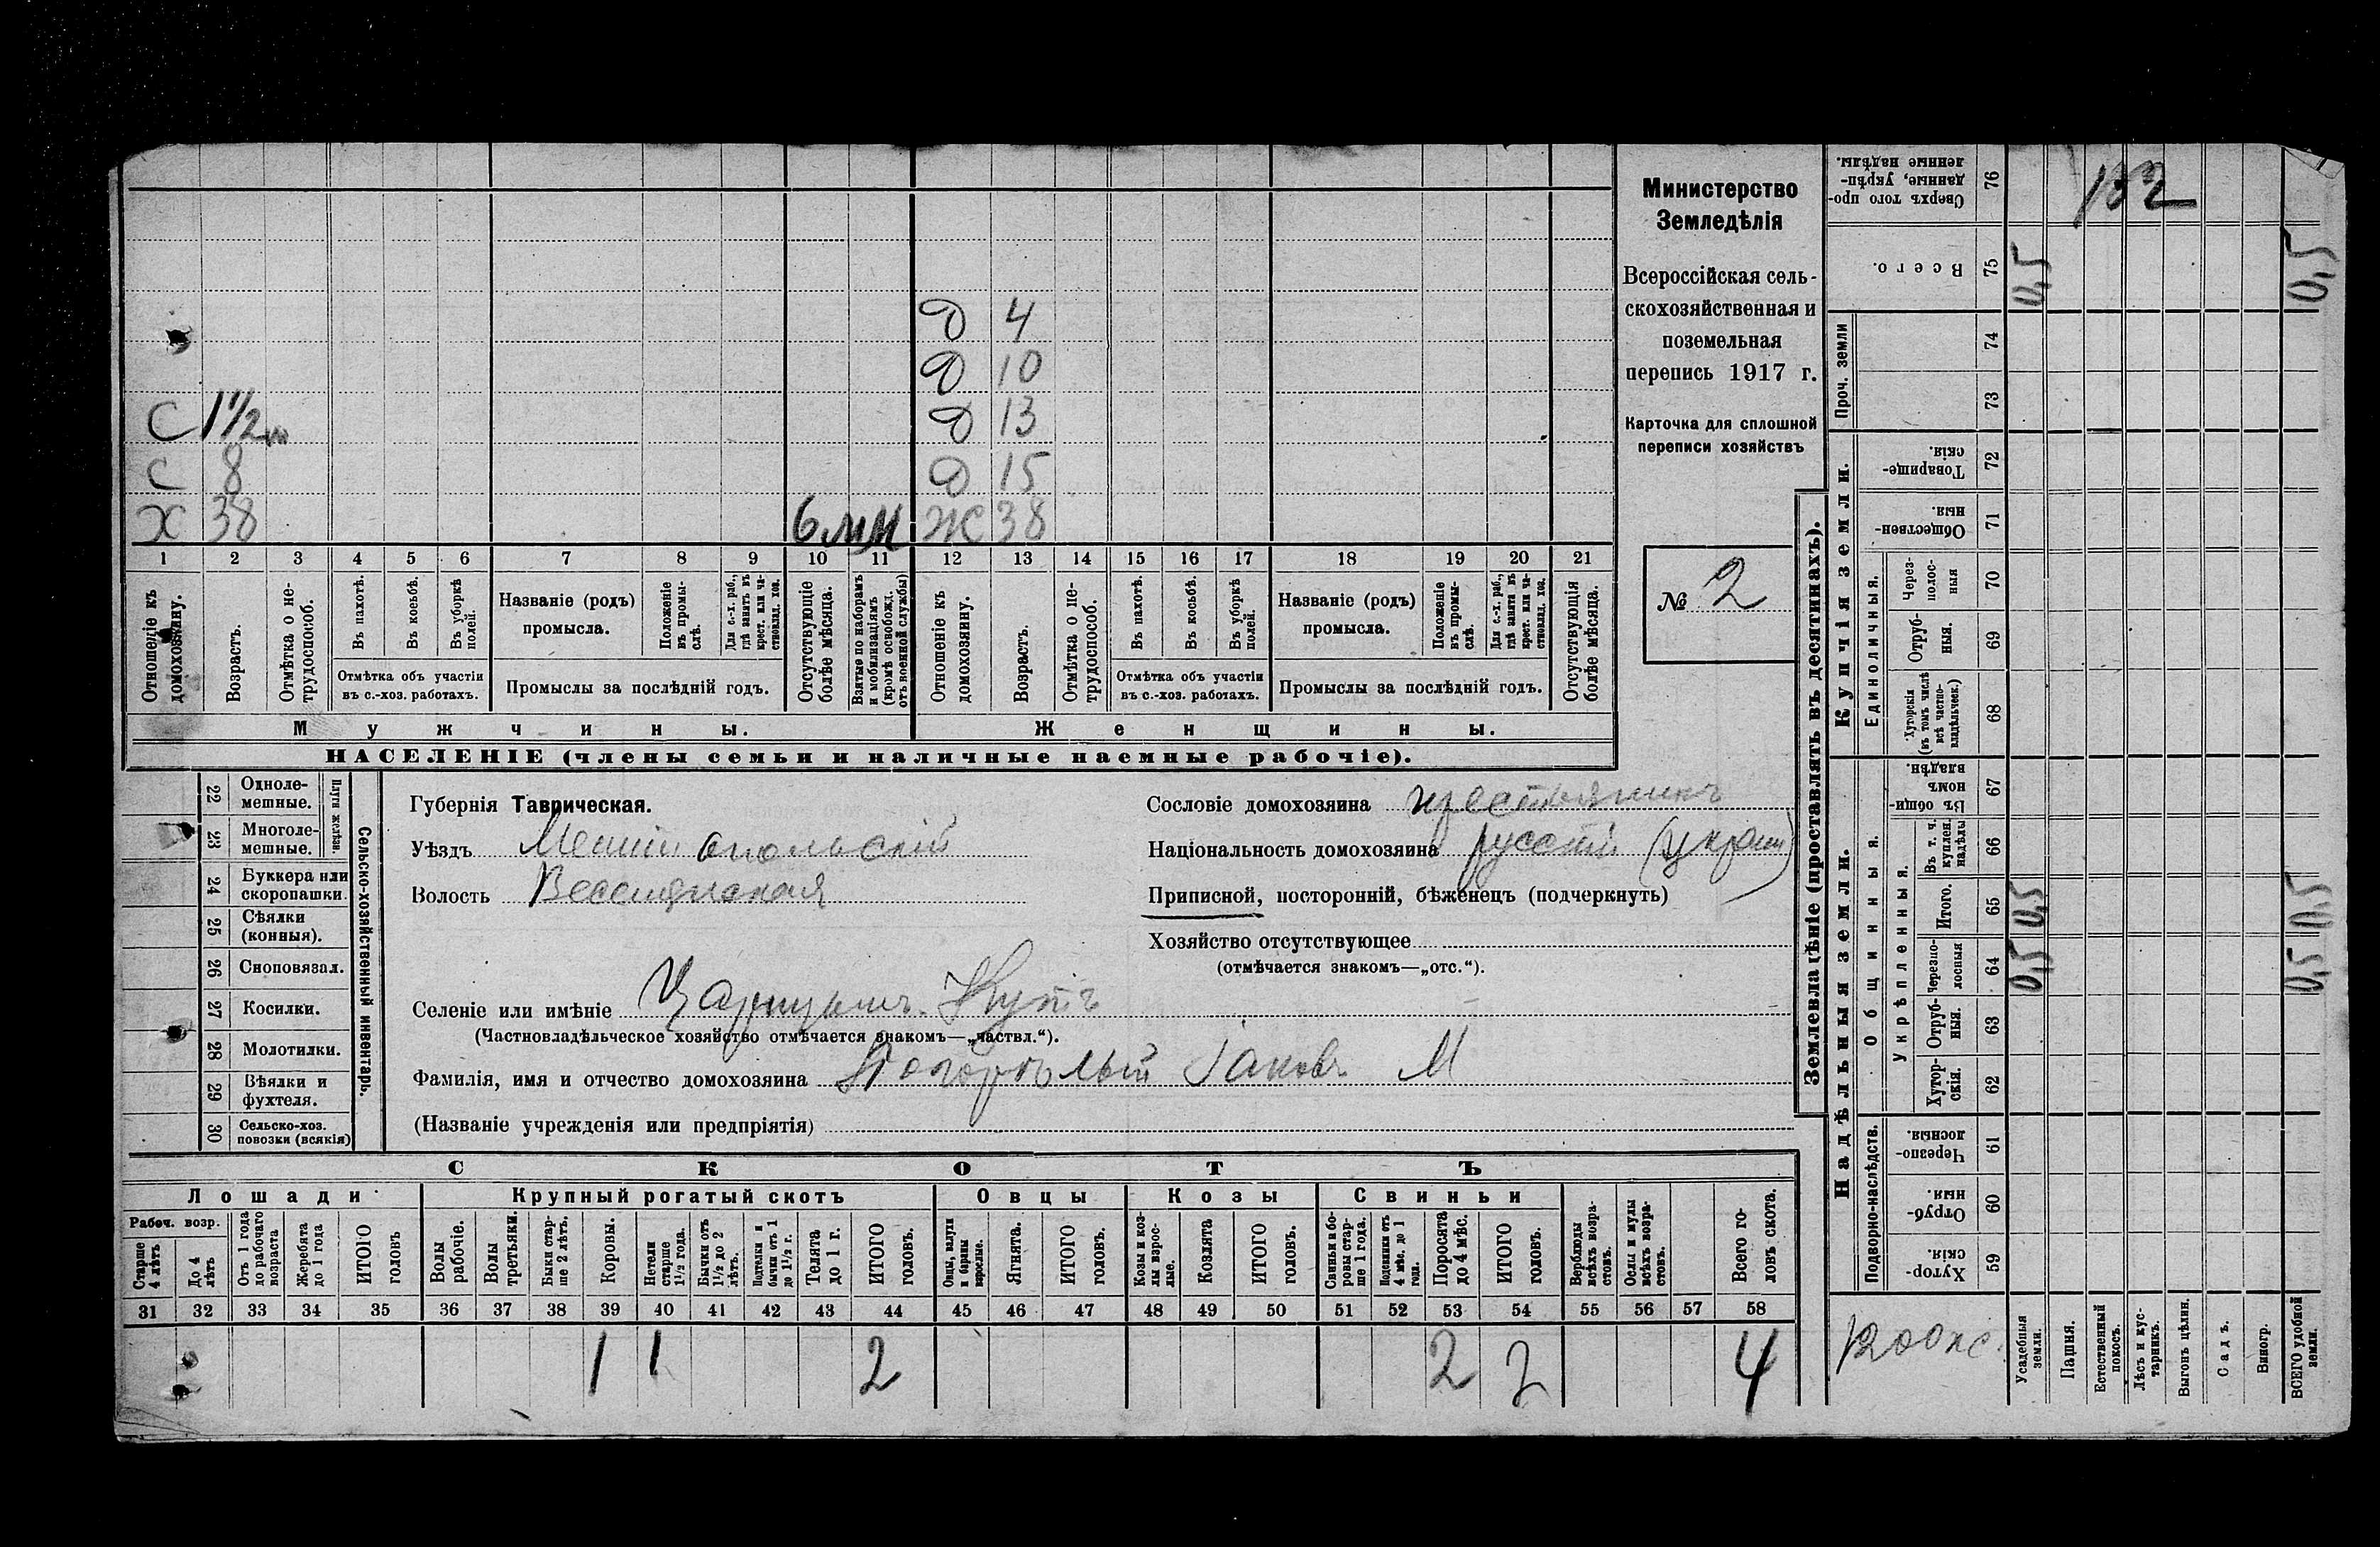 Министерство
Земледѣлія
Всероссійская сель-
скохозяйственная и
поземельная
перепись 1917 г.
Карточка для сплошной
переписи хозяйствъ
№ 2
Д 4
Д 10
С 1½ Д 13
С 8 Д 15
Х 38 Ж 38
1 2 3 4 5 6 7 8 9 10 11 12 13 14 15 16 17 18 19 20 21
Отношеніе къ домохозяину.
Возрастъ.
Отмѣтка о не-трудоспособ.
Въ пахотѣ.
Въ косьбѣ.
Въ уборкѣ полей.
Отмѣтка объ участіи
въ с.-хоз. работахъ.
Названіе (родъ)
промысла.
Положеніе въ промы-слѣ.
Для с.-х. раб., гдѣ занятъ въ крест. или ча-стновлад. хоз.
Промыслы за послѣдній годъ.
Отсутствующіе болѣе мѣсяца.
Взятые по наборамъ и мобилизаціямъ (кромѣ освобожд. отъ военной службы)
Отношеніе къ домохозяину.
Возрастъ.
Отмѣтка о не-трудоспособ.
Въ пахотѣ.
Въ косьбѣ.
Въ уборкѣ полей.
Отмѣтка объ участіи
въ с.-хоз. работахъ.
Названіе (родъ)
промысла.
Положеніе въ промы-слѣ.
Для с.-х. раб., гдѣ занята въ крест. или ча-стновлад. хоз.
Промыслы за послѣдній годъ.
Отсутствующія болѣе мѣсяца.
Мужчины. Женщины.
НАСЕЛЕНІЕ (члены семьи и наличные наемные рабочіе).
Сельско-хозяйственный инвентарь.
Плуги желѣзн.
22 Одноле-мешные.
23 Многоле-мешные.
24 Буккера или скоропашки.
25 Сѣялки (конныя).
26 Сноповязал.
27 Косилки.
28 Молотилки.
29 Вѣялки и фухтеля.
30 Сельско-хоз. повозки (всякія)
Губернія Таврическая.
Уѣздъ Мелитопольскій
Волость
Селеніе или имѣніе Царицынъ Кутъ
(Частновладѣльческое хозяйство отмѣчается знакомъ—„частвл.“).
Фамилія, имя и отчество домохозяина Іаковъ М
(Названіе учрежденія или предпріятія)
Сословіе домохозяина крестьянинъ
Національность домохозяина русскій (украин)
Приписной, посторонній, бѣженецъ (подчеркнуть)
Хозяйство отсутствующее
(отмѣчается знакомъ—„отс.“).
СКОТЪ
Лошади Крупный рогатый скотъ Овцы Козы Свиньи
Рабоч. возр.
Старше 4 лѣтъ
До 4 лѣтъ
Отъ 1 года до рабочаго возраста
Жеребята до 1 года
ИТОГО головъ
Волы рабочіе.
Волы третьяки.
Быки стар-ше 2 лѣтъ.
Коровы.
Нетели старше 1½ года.
Бычки отъ 1½ до 2 лѣтъ.
Подтелки и бычки отъ 1 до 1½ г.
Телята до 1 г.
ИТОГО головъ.
Овцы, валухи и бараны взрослые.
Ягнята.
ИТОГО головъ.
Козы и коз-лы взрос-лые.
Козлята
ИТОГО головъ.
Свиньи и бо-ровы стар-ше 1 года.
Подсвинки отъ 4 мѣс. до 1 года.
Поросята до 4 мѣс.
ИТОГО головъ.
Верблюды всѣхъ возра-стовъ.
Ослы и мулы всѣхъ возра-стовъ.
Всего го-ловъ скота.
31 32 33 34 35 36 37 38 39 40 41 42 43 44 45 46 47 48 49 50 51 52 53 54 55 56 57 58
1 1 2 2 2 4
Землевладѣніе (проставлять въ десятинахъ).
Сверхъ того про-данные, укрѣп-ленные надѣлы. 76 132
Всего. 75 0,5 0,5
Проч. земли
74
73
Купчія земли.
Товарище-скія. 72
Обществен-ныя. 71
Единоличныя.
Через-полос-ныя 70
Отруб-ныя. 69
Хуторскія (въ томъ числѣ всѣ частно-владѣльческ.) 68
Надѣльныя земли.
Общинныя.
Въ общи-номъ владѣн. 67
Укрѣпленныя.
Въ т. ч. куплен. надѣлы 66
Итого. 65 0,5 0,5
Черезпо-лосныя 64 0,5 0,5
Отруб-ныя. 63
Хутор-скія. 62
Подворно-наслѣдств.
Черезпо-лосныя. 61
Отруб-ныя. 60
Хутор-скія. 59
1200 кс.
Усадебныя земли.
Пашня.
Естественный покосъ.
Лѣсъ и кус-тарникъ.
Выгонъ цѣлин.
Садъ.
Виногр.
ВСЕГО удобной земли.